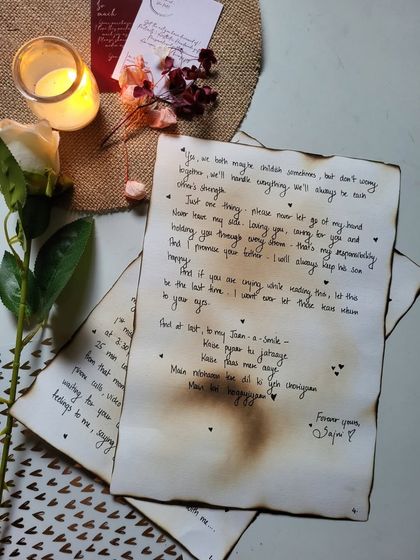 so
much
Yes, we both maybe childish sometimes, but don't worry
together, we'll handle everything. We'll always be each
other's strength.
Just one thing - please never let go of my hand
Never leave my side. Loving you, caring for you and
holding you through every storm - that's my responsibility,
And I promise your father - I will always keep his son
happy.
And if you are crying while reading this, let this
be the last time. I won't ever let those tears return
to your eyes.
And at last, to my Jaan-a-Smile -
Kaise pyaar tu jataaye
Kaise paas mere aaye
Main nibhaoon tere dil ki yeh choriyaan
Main teri hogayiyaan
Forever yours,
Sajni
4.
at 3:3
25 min
from that mom
room calls, video
waiting for your
feelings to me, saying
with me...